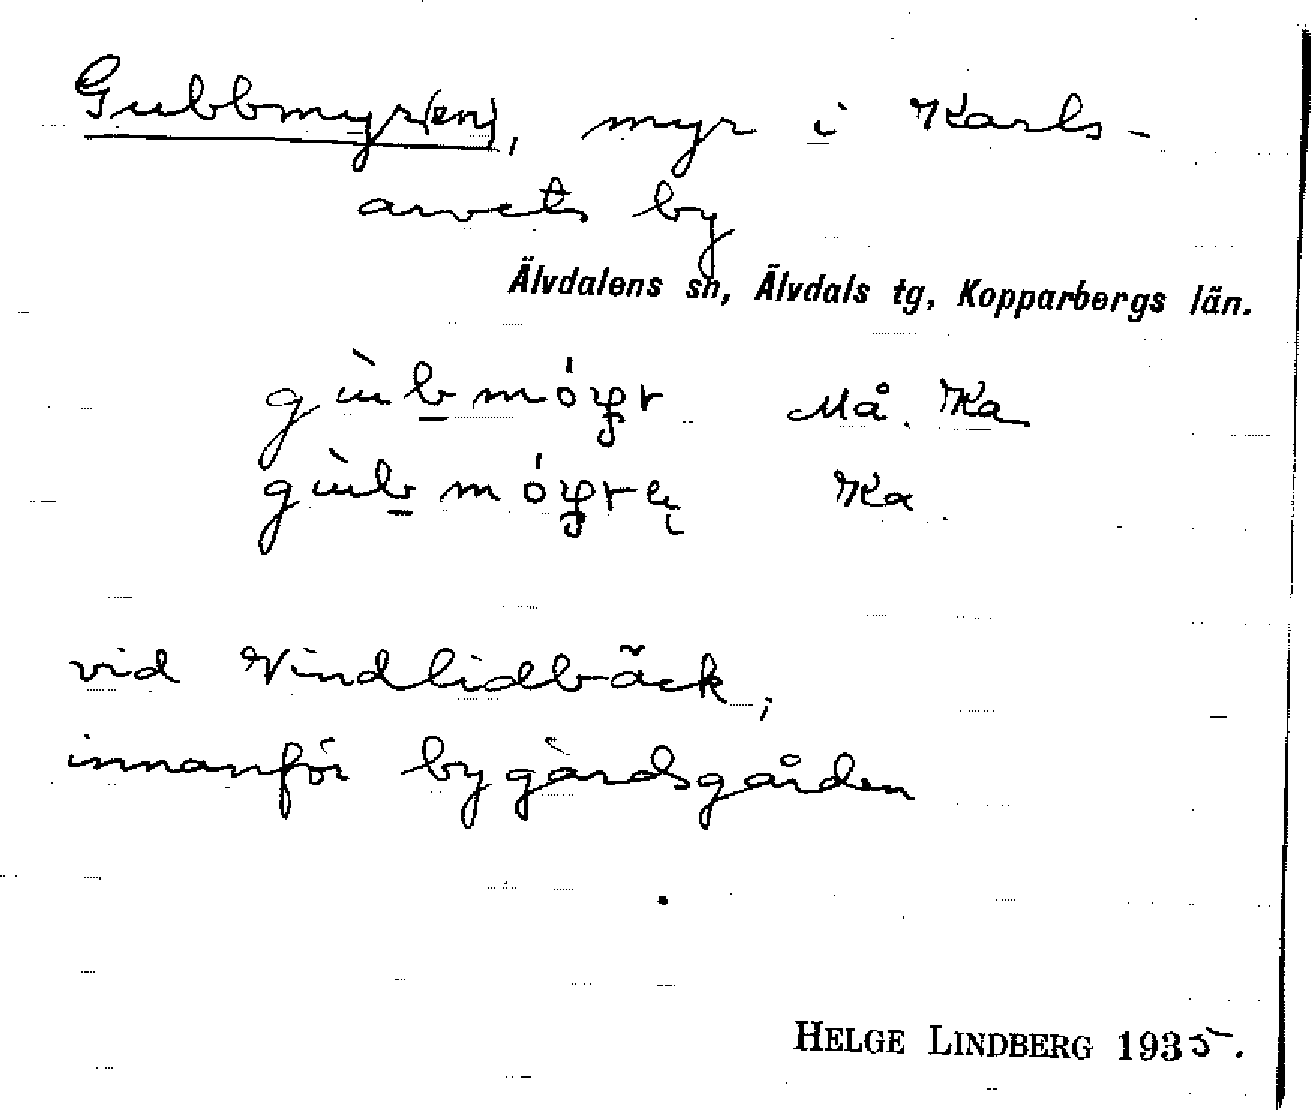 Gubbmyr(en), myr i Karls-
arvets by
Älvdalens sn, Älvdals tg, Kopparbergs län.
Må. Ka
Ka
vid Vindlidbäck,
innanför bygårdsgården
HELGE LINDBERG 1935.